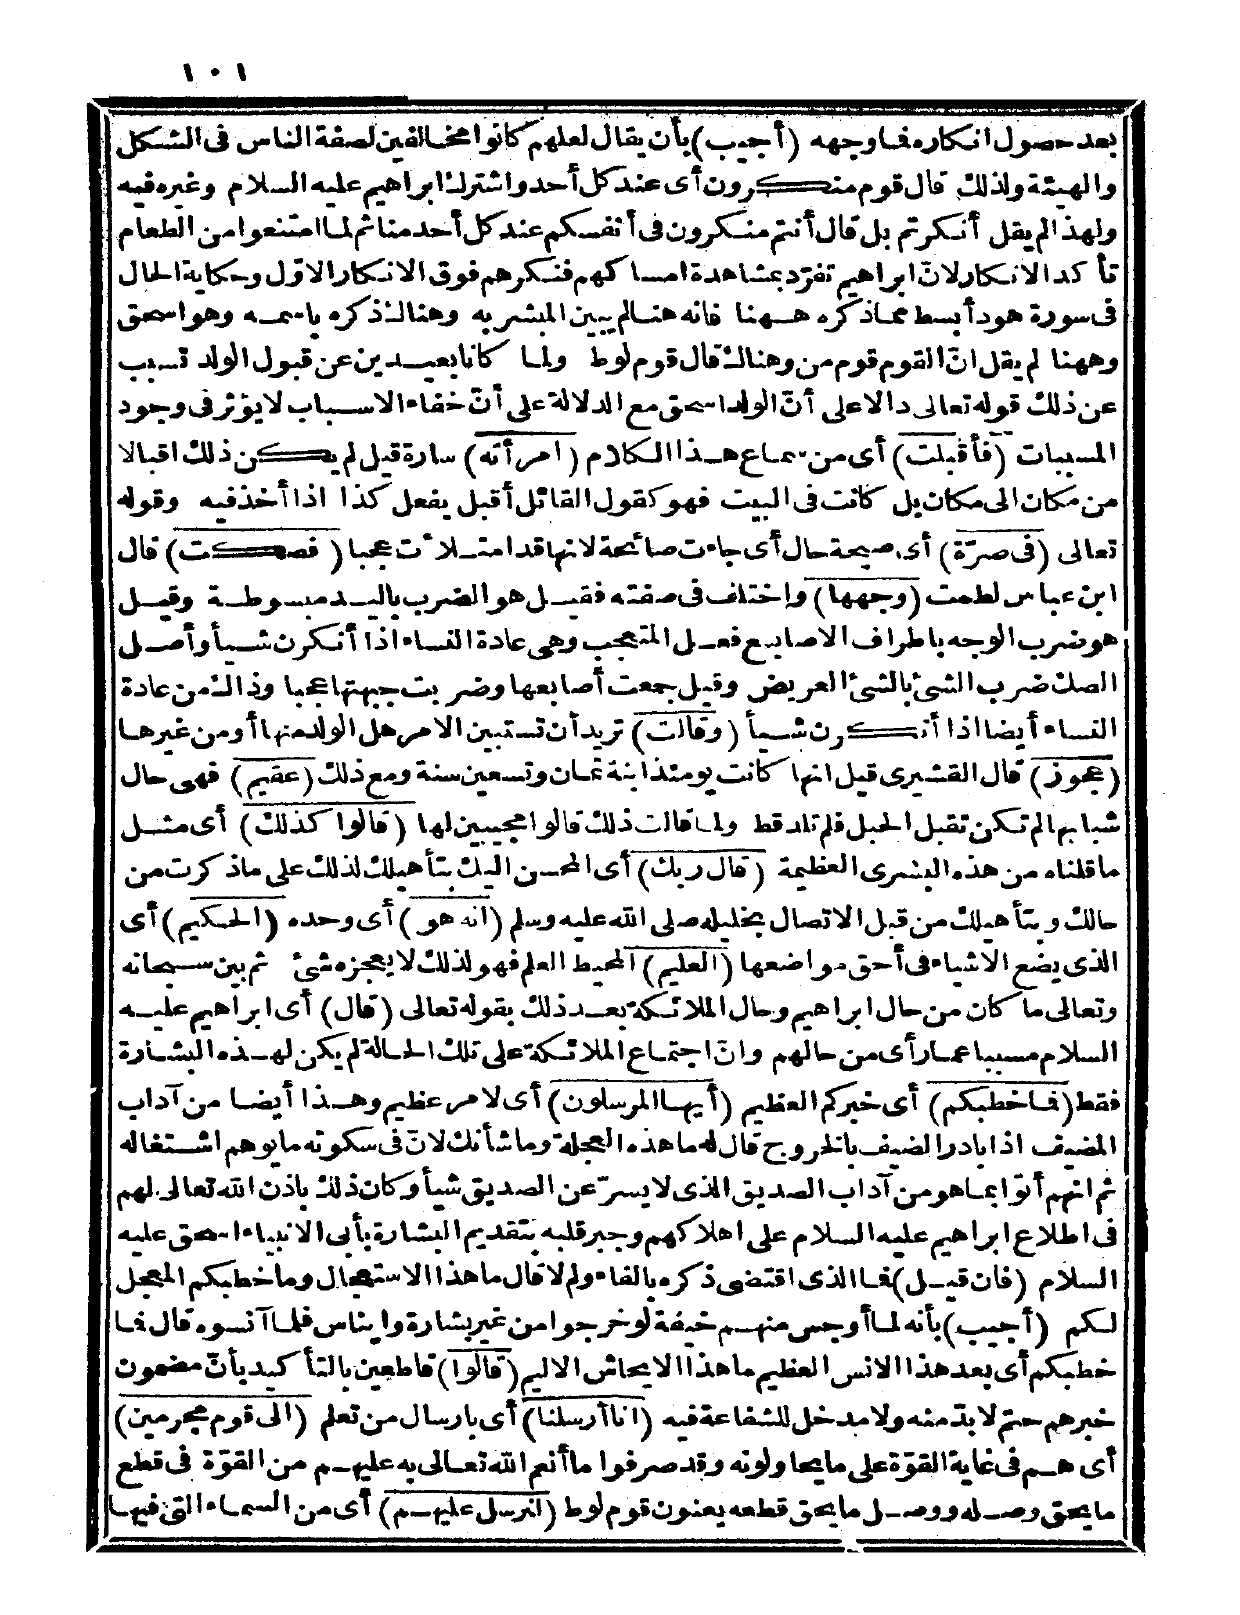 ١٠١
بعد حصول انكاره فما وجهه (أجيب) بأن يقال لعلهم كانوا مخالفين لصفة الناس فى الشكل
والهيئة ولذلك قال قوم منكرون أى عند كل أحد واشترك ابراهيم عليه السلام وغيره فيه
ولهذا لم يقل أنكرتم بل قال أنتم منكرون فى أنفسكم عند كل أحد منا ثم لما امتنعوا من الطعام
تأكد الانكار لانّ ابراهيم تفرّد بمشاهدة امساكهم فنكرهم فوق الانكار الاوّل وحكاية الحال
فى سورة هود أبسط مما ذكره ههنا فانه هنا لم يبين المبشر به وهناك ذكره باسمه وهو اسحق
وههنا لم يقل انّ القوم قوم من وهناك قال قوم لوط ولما كانا بعيدين عن قبول الولد تسبب
عن ذلك قوله تعالى دالا على أنّ الولد اسحق مع الدلالة على أنّ خفاء الاسباب لا يؤثر فى وجود
المسببات (فأقبلت) أى من سماع هذا الكلام (امرأته) سارة قيل لم يكن ذلك اقبالا
من مكان الى مكان بل كانت فى البيت فهو كقول القائل أقبل يفعل كذا اذا أخذ فيه وقوله
تعالى (فى صرّة) أى صيحة حال أى جاءت صائحة لانها قد امتلأت عجبا (فصكت) قال
ابن عباس لطمت (وجهها) واختلف فى صفته فقيل هو الضرب باليد مبسوطة وقيل
هو ضرب الوجه باطراف الاصابع فعل المتعجب وهى عادة النساء اذا أنكرن شيأ وأصل
الصك ضرب الشئ بالشئ العريض وقيل جمعت أصابعها وضربت جبهتها عجبا وذلك من عادة
النساء أيضا اذا أنكرن شيأ (وقالت) تريد أن تستبين الامر هل الولد منها أو من غيرها
(عجوز) قال القشيرى قيل انها كانت يومئذ ابنة ثمان وتسعين سنة ومع ذلك (عقيم) فهى حال
شبابها لم تكن تقبل الحبل فلم تلد قط ولما قالت ذلك قالوا مجيبين لها (قالوا كذلك) أى مثل
ما قلناه من هذه البشرى العظيمة (قال ربك) أى المحسن اليك بتأهيلك لذلك على ما ذكرت من
حالك وبتأهيلك من قبل الاتصال بخليله صلى الله عليه وسلم (انه هو) أى وحده (الحكيم) أى
الذى يضع الاشياء فى أحق مواضعها (العليم) المحيط العلم فهو لذلك لا يعجزه شئ ثم بين سبحانه
وتعالى ما كان من حال ابراهيم وحال الملائكة بعد ذلك بقوله تعالى (قال) أى ابراهيم عليه
السلام مسببا عما رأى من حالهم وانّ اجتماع الملائكة على تلك الحالة لم يكن لهذه البشارة
فقط (فما خطبكم) أى خبركم العظيم (أيها المرسلون) أى لامر عظيم وهذا أيضا من آداب
المضيف اذا بادر الضيف بالخروج قال له ما هذه العجلة وما شأنك لانّ فى سكوته ما يوهم اشتغاله
ثم انهم أتوا بما هو من آداب الصديق الذى لا يسرّ عن الصديق شيأ وكان ذلك باذن الله تعالى لهم
فى اطلاع ابراهيم عليه السلام على اهلاكهم وجبر قلبه بتقديم البشارة بأبى الانبياء اسحق عليه
السلام (فان قيل) فما الذى اقتضى ذكره بالفاء ولم لا قال ما هذا الاستعجال وما خطبكم المعجل
لكم (أجيب) بأنه لما أوجس منهم خيفة لو خرجوا من غير بشارة وايناس فلما آنسوه قال فما
خطبكم أى بعد هذا الانس العظيم ما هذا الايحاش الاليم (قالوا) قاطعين بالتأكيد بأنّ مضمون
خبرهم حتم لا بدّ منه ولا مدخل للشفاعة فيه (انا أرسلنا) أى بارسال من تعلم (الى قوم مجرمين)
أى هم فى غاية القوّة على ما يحاولونه وقد صرفوا ما أنعم الله تعالى به عليهم من القوّة فى قطع
ما يحق وصله ووصل ما يحق قطعه يعنون قوم لوط (لنرسل عليهم) أى من السماء التى فيها